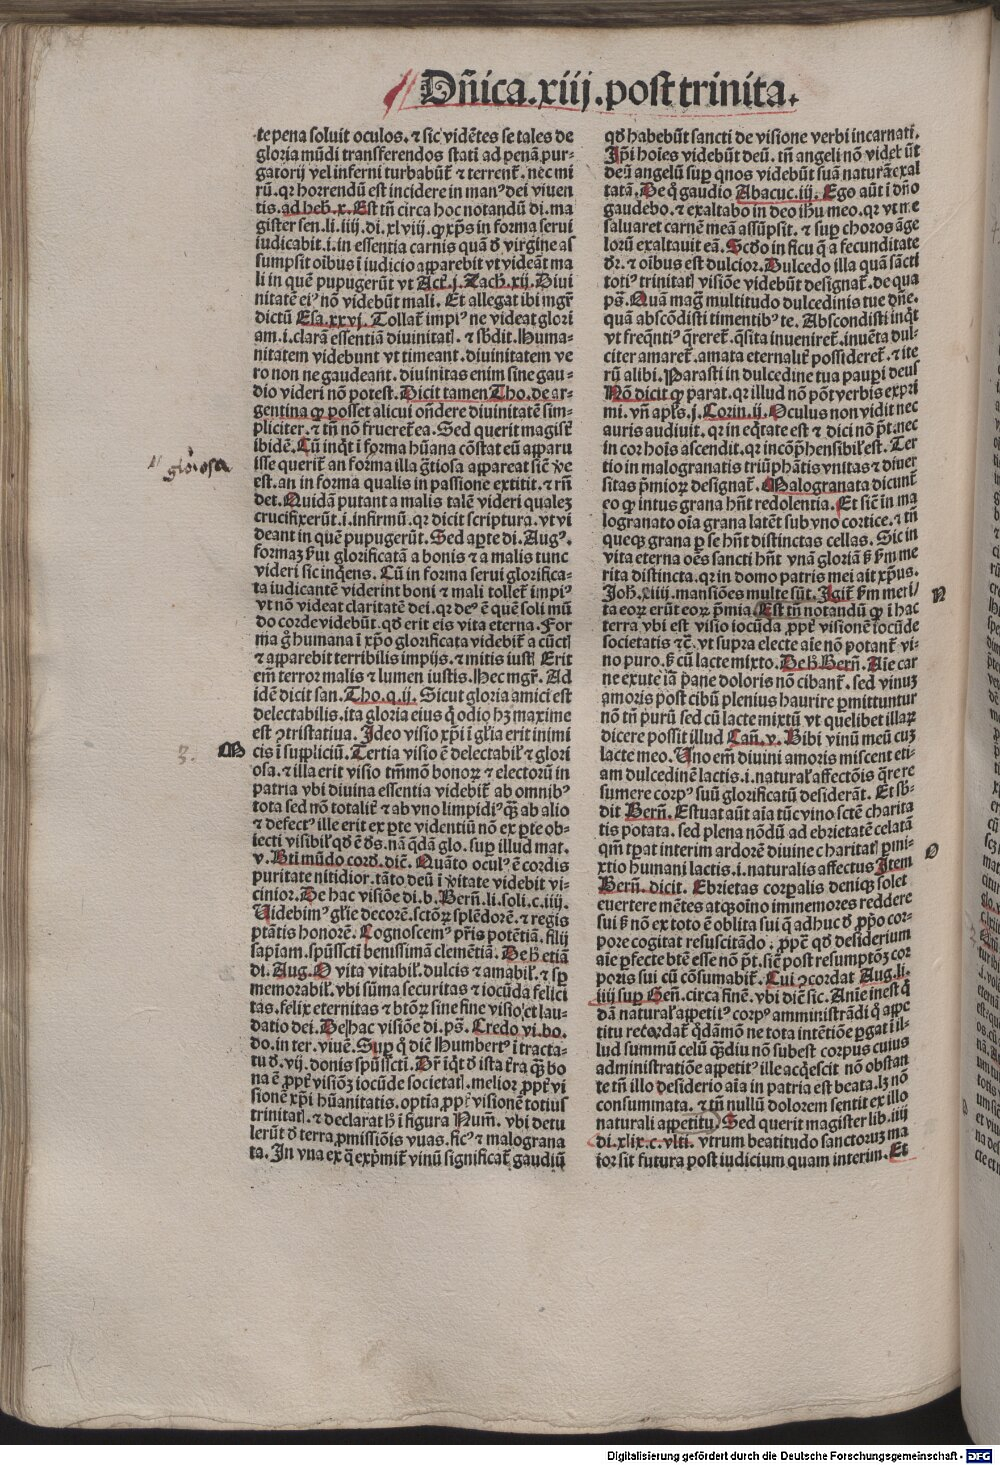 Dñica.xiij.post trinita.
te pena soluit oculos. ⁊ sic vidētes se tales de
gloria mūdi transferendos stati ad penā pur-
gatorij vel inferni turbabūt̃ ⁊ terrent̃. nec mi
rū. qꝛ horrendū est incidere in manꝰ dei viuen
tis. ad heb̃. x. Est tn̄ circa hoc notandū di. ma
gister sen. li. iiij. di. xlviij. ꝙ xp̄s in forma serui
iudicabit .i. in essentia carnis quā d̓ virgine as
sumpsit oībus ī iudicio apparebit vt videāt ma
li in quē pupugerūt vt Act̃. j. Zach. xij. Diui
nitatē eiꝰ nō videbūt mali. Et allegat ibi mgr̄
dictū Esa. xxvj. Tollat̃ impiꝰ ne videat glori
am .i. clarā essentiā diuinitatꝭ. ⁊ sb̓dit. Huma-
nitatem videbunt vt timeant. diuinitatem ve
ro non ne gaudeant. diuinitas enim sine gau-
dio videri nō potest. Dicit tamen Tho. de ar-
gentina ꝙ posset alicui oñdere diuinitatē sim-
pliciter. ⁊ tn̄ nō frueret̃ ea. Sed querit magist̃
ibidē. Cū inq̇t ī forma hūana cōstat eū apparu
isse querit̃ an forma illa g̃tiosa appareat sic̃ v̓e
est. an in forma qualis in passione extitit. ⁊ rn̄
det. Quidā putant a malis talē videri qualeꝫ
crucifixerūt .i. infirmū. qꝛ dicit scriptura. vt vi
deant in quē pupugerūt. Sed aperte di. Augꝰ.
formaꝫ s̓ui glorificatā a bonis ⁊ a malis tunc
videri sic inq̇ens. Cū in forma serui glorifica-
ta iudicantē viderint boni ⁊ mali tollet̃ impiꝰ
vt nō videat claritatē dei. qꝛ deꝰ ē quē soli mū
do corde videbūt. qd̓ erit eis vita eterna. For
ma g̊ humana ī xp̄o glorificata videbit̃ a cūctꝭ
⁊ apparebit terribilis impijs. ⁊ mitis iustꝭ Erit
em̄ terror malis ⁊ lumen iustis. Hec mgr̄. Ad
idē dicit san. Tho. q. ij. Sicut gloria amici est
delectabilis. ita gloria eius q̄ odio hꝫ maxime
est ꝯtristatiua. Ideo visio xp̄i ī gl̓ia erit inimi
cis ī suppliciū. Tertia visio ē delectabil̓ ⁊ glori
osa. ⁊ illa erit visio tm̄mō bonoꝝ ⁊ electorū in
patria vbi diuina essentia videbit̃ ab omnibꝰ
tota sed nō totalit̃ ⁊ ab vno limpidiꝰ q̄ꝫ ab alio
⁊ defectꝰ ille erit ex ꝑte videntiū nō ex ꝑte ob-
iecti visibil̓ qd̓ ē d̓s. nā q̇dā glo. sup illud mat.
v. Bti mūdo cord̓. dic̄. Quāto oculꝰ ē cordis
puritate nitidior. tāto deū ī v̓itate videbit vi-
cinior. De hac visiōe di. b. Bern̄. li. soli. c. iiij.
Videbimꝰ gl̓ie decorē. sctōꝝ splēdorē. ⁊ regis
ptātis honorē. Cognoscemꝰ pr̄is potētiā. filij
sapiām. spūssctī benissimā clemētiā. De h̓ etiā
di. Aug. O vita vitabil̓. dulcis ⁊ amabil̓. ⁊ sp̄
memorabil̓. vbi sūma securitas ⁊ iocūda felici
tas. felix eternitas ⁊ btōꝝ sine fine visio. et lau-
datio dei. De hac visiōe di. ps̄. Credo vi. bo.
do. in ter. viuē. Sup q̊ dic̄ Humbertꝰ ī tracta-
tu d̓. vij. donis spūssctī. Br̄ īq̇t d̓ ista tr̄ra q̄ꝫ bo
na ē ꝓpt̃ visiōꝫ iocūde societatꝭ. melior ꝓpt̃ vi
sionē xp̄i hūanitatis. optīa ꝓpt̃ visionē totius
trinitatꝭ. ⁊ declarat h̓ ī figura Num̄. vbi detu
lerūt d̓ terra ꝓmissiōis vuas. ficꝰ ⁊ malograna
ta. In vua ex q̄ exp̄mit̃ vinū significat̃ gaudiū
qd̓ habebūt sancti de visione verbi incarnati.
Ip̄i hoīes videbūt deū. tn̄ angeli nō videbūt
deū angelū sup quos videbūt suā naturā exal
tatā. De q̊ gaudio Abacuc. iij. Ego aūt ī dn̄o
gaudebo. ⁊ exaltabo in deo ih̄u meo. qꝛ vt me
saluaret carnē meā assūpsit. ⁊ sup choros āge
lorū exaltauit eā. Scd̓o in ficu q̄ a fecunditate
dr̄. ⁊ oībus est dulcior. Dulcedo illa quā sācti
totiꝰ trinitatꝭ visiōe videbūt designat̃. de qua
ps̄. Quā mag̃ multitudo dulcedinis tue dn̄e.
quā abscōdisti timentibꝰ te. Abscondisti inq̇t
vt freq̄ntiꝰ q̄reret̃. q̄sita inueniret̃. inuēta dul-
citer amaret̃. amata eternalit̃ possideret̃. ⁊ ite
rū alibi. Parasti in dulcedine tua pauꝑi deus
Nō dicit ꝙ parat. qꝛ illud nō pōt verbis expri
mi. vn̄ apl̓s. j. Corin. ij. Oculus non vidit nec
auris audiuit. qꝛ in eq̇tate est ⁊ dici nō p̄t. nec
in cor hoīs ascendit. qꝛ incōp̄hensibil̓ est. Ter
tio in malogranatis triūphātis vnitas ⁊ diuer
sitas p̄mioꝝ designat̃. Malogranata dicunt̃
eo ꝙ intus grana hn̄t redolentia. Et sic̄ in ma
logranato oīa grana latēt sub vno cortice. ⁊ tn̄
queqꝫ grana ꝑ se hn̄t distinctas cellas. Sic in
vita eterna oēs sancti hn̄t vnā gloriā s̓ ẜm me
rita distincta. qꝛ in domo patris mei ait xp̄us.
Joh̄. xiiij. mansiōes multe sūt. Igit̃ ẜm meri/
ta eoꝝ erūt eoꝝ p̄mia. Est tn̄ notandū ꝙ ī hac
terra vbi est visio iocūda ꝓpt̃ visionē iocūde
societatis ⁊c̄. vt supra electe aīe nō potant̃ vi-
no puro. s̓ cū lacte mixto. De h̓ Bern̄. Aīe car
ne exute iā pane doloris nō cibant̃. sed vinuꝫ
amoris post cibū plenius haurire ꝑmittuntur
nō tn̄ purū sed cū lacte mixtū vt quelibet illaꝝ
dicere possit illud Can̄. v. Bibi vinū meū cuꝫ
lacte meo. Uno em̄ diuini amoris miscent eti-
am dulcedinē lactis .i. natural̓ affectōis q̄rere
sumere corpꝰ suū glorificatū desiderāt. Et sb̓-
dit Bern̄. Estuat aūt aīa tūc vino sctē charita
tis potata. sed plena nōdū ad ebrietatē celatā
qm̄ tꝑat interim ardorē diuine charitatꝭ ꝑmi-
xtio humani lactis .i. naturalis affectus Item
Bern̄. dicit. Ebrietas corꝑalis deniqꝫ solet
euertere mētes atqꝫ oīno immemores reddere
sui s̓ nō ex toto ē oblita sui q̄ adhuc d̓ ꝓp̓o cor-
pore cogitat resuscitādo. ꝓpt̃ qd̓ desiderium
aīe ꝑfecte btē esse nō p̄t. sic̄ post resumptōꝫ cor
poris sui cū cōsumabit̃. Cui ꝯcordat Aug. li.
iiij sup Gen̄. circa finē. vbi dic̄ sic. Anīe inest q̇
dā natural̓ appetitꝰ corpꝰ amministrādi q̊ appe
titu retardat̃ q̊dāmō ne tota intētiōe ꝑgat ī il-
lud summū celū q̄ꝫdiu nō subest corpus cuius
administratiōe appetitꝰ ille acq̇escit nō obstan
te tn̄ illo desiderio aīa in patria est beata. lꝫ nō
consummata. ⁊ tn̄ nullū dolorem sentit ex illo
naturali appetitu. Sed querit magister lib. iiij
di. xlix. c. vlti. vtrum beatitudo sanctoruꝫ ma
ior sit futura post iudicium quam interim. Et
gloriosa
3.
M
N
O
Digitalisierung gefördert durch die Deutsche Forschungsgemeinschaft - DFG